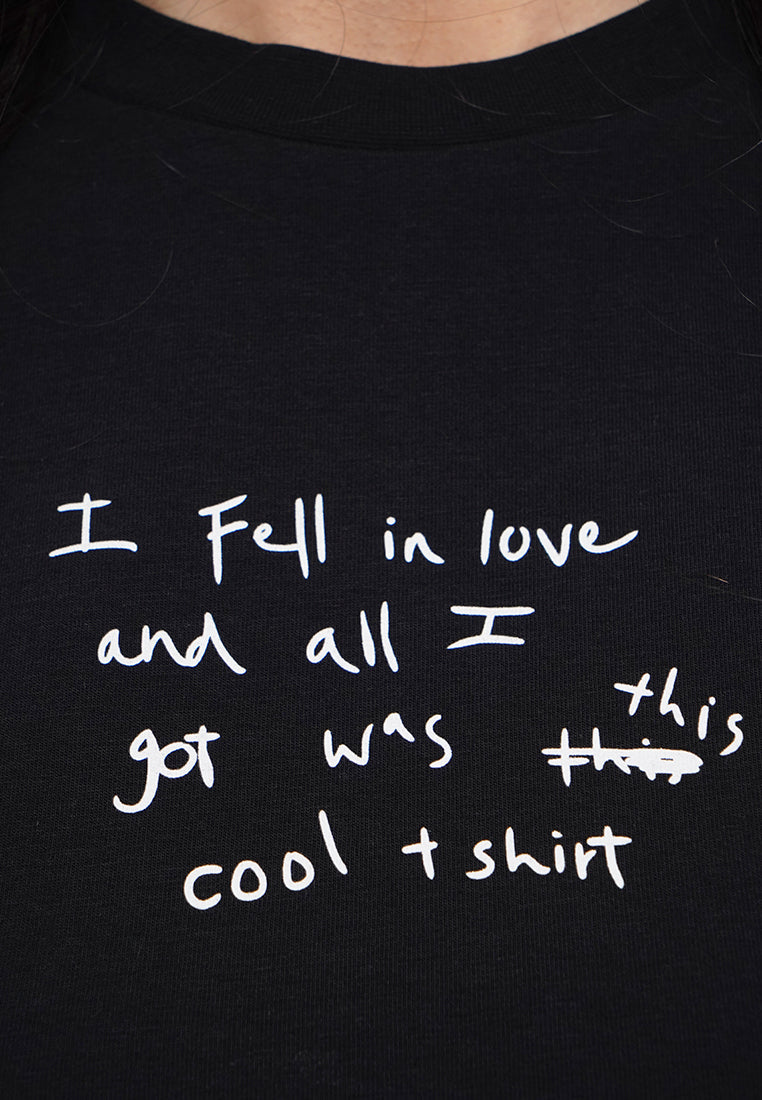 I Fell in love
and all I
got was this this
cool t shirt